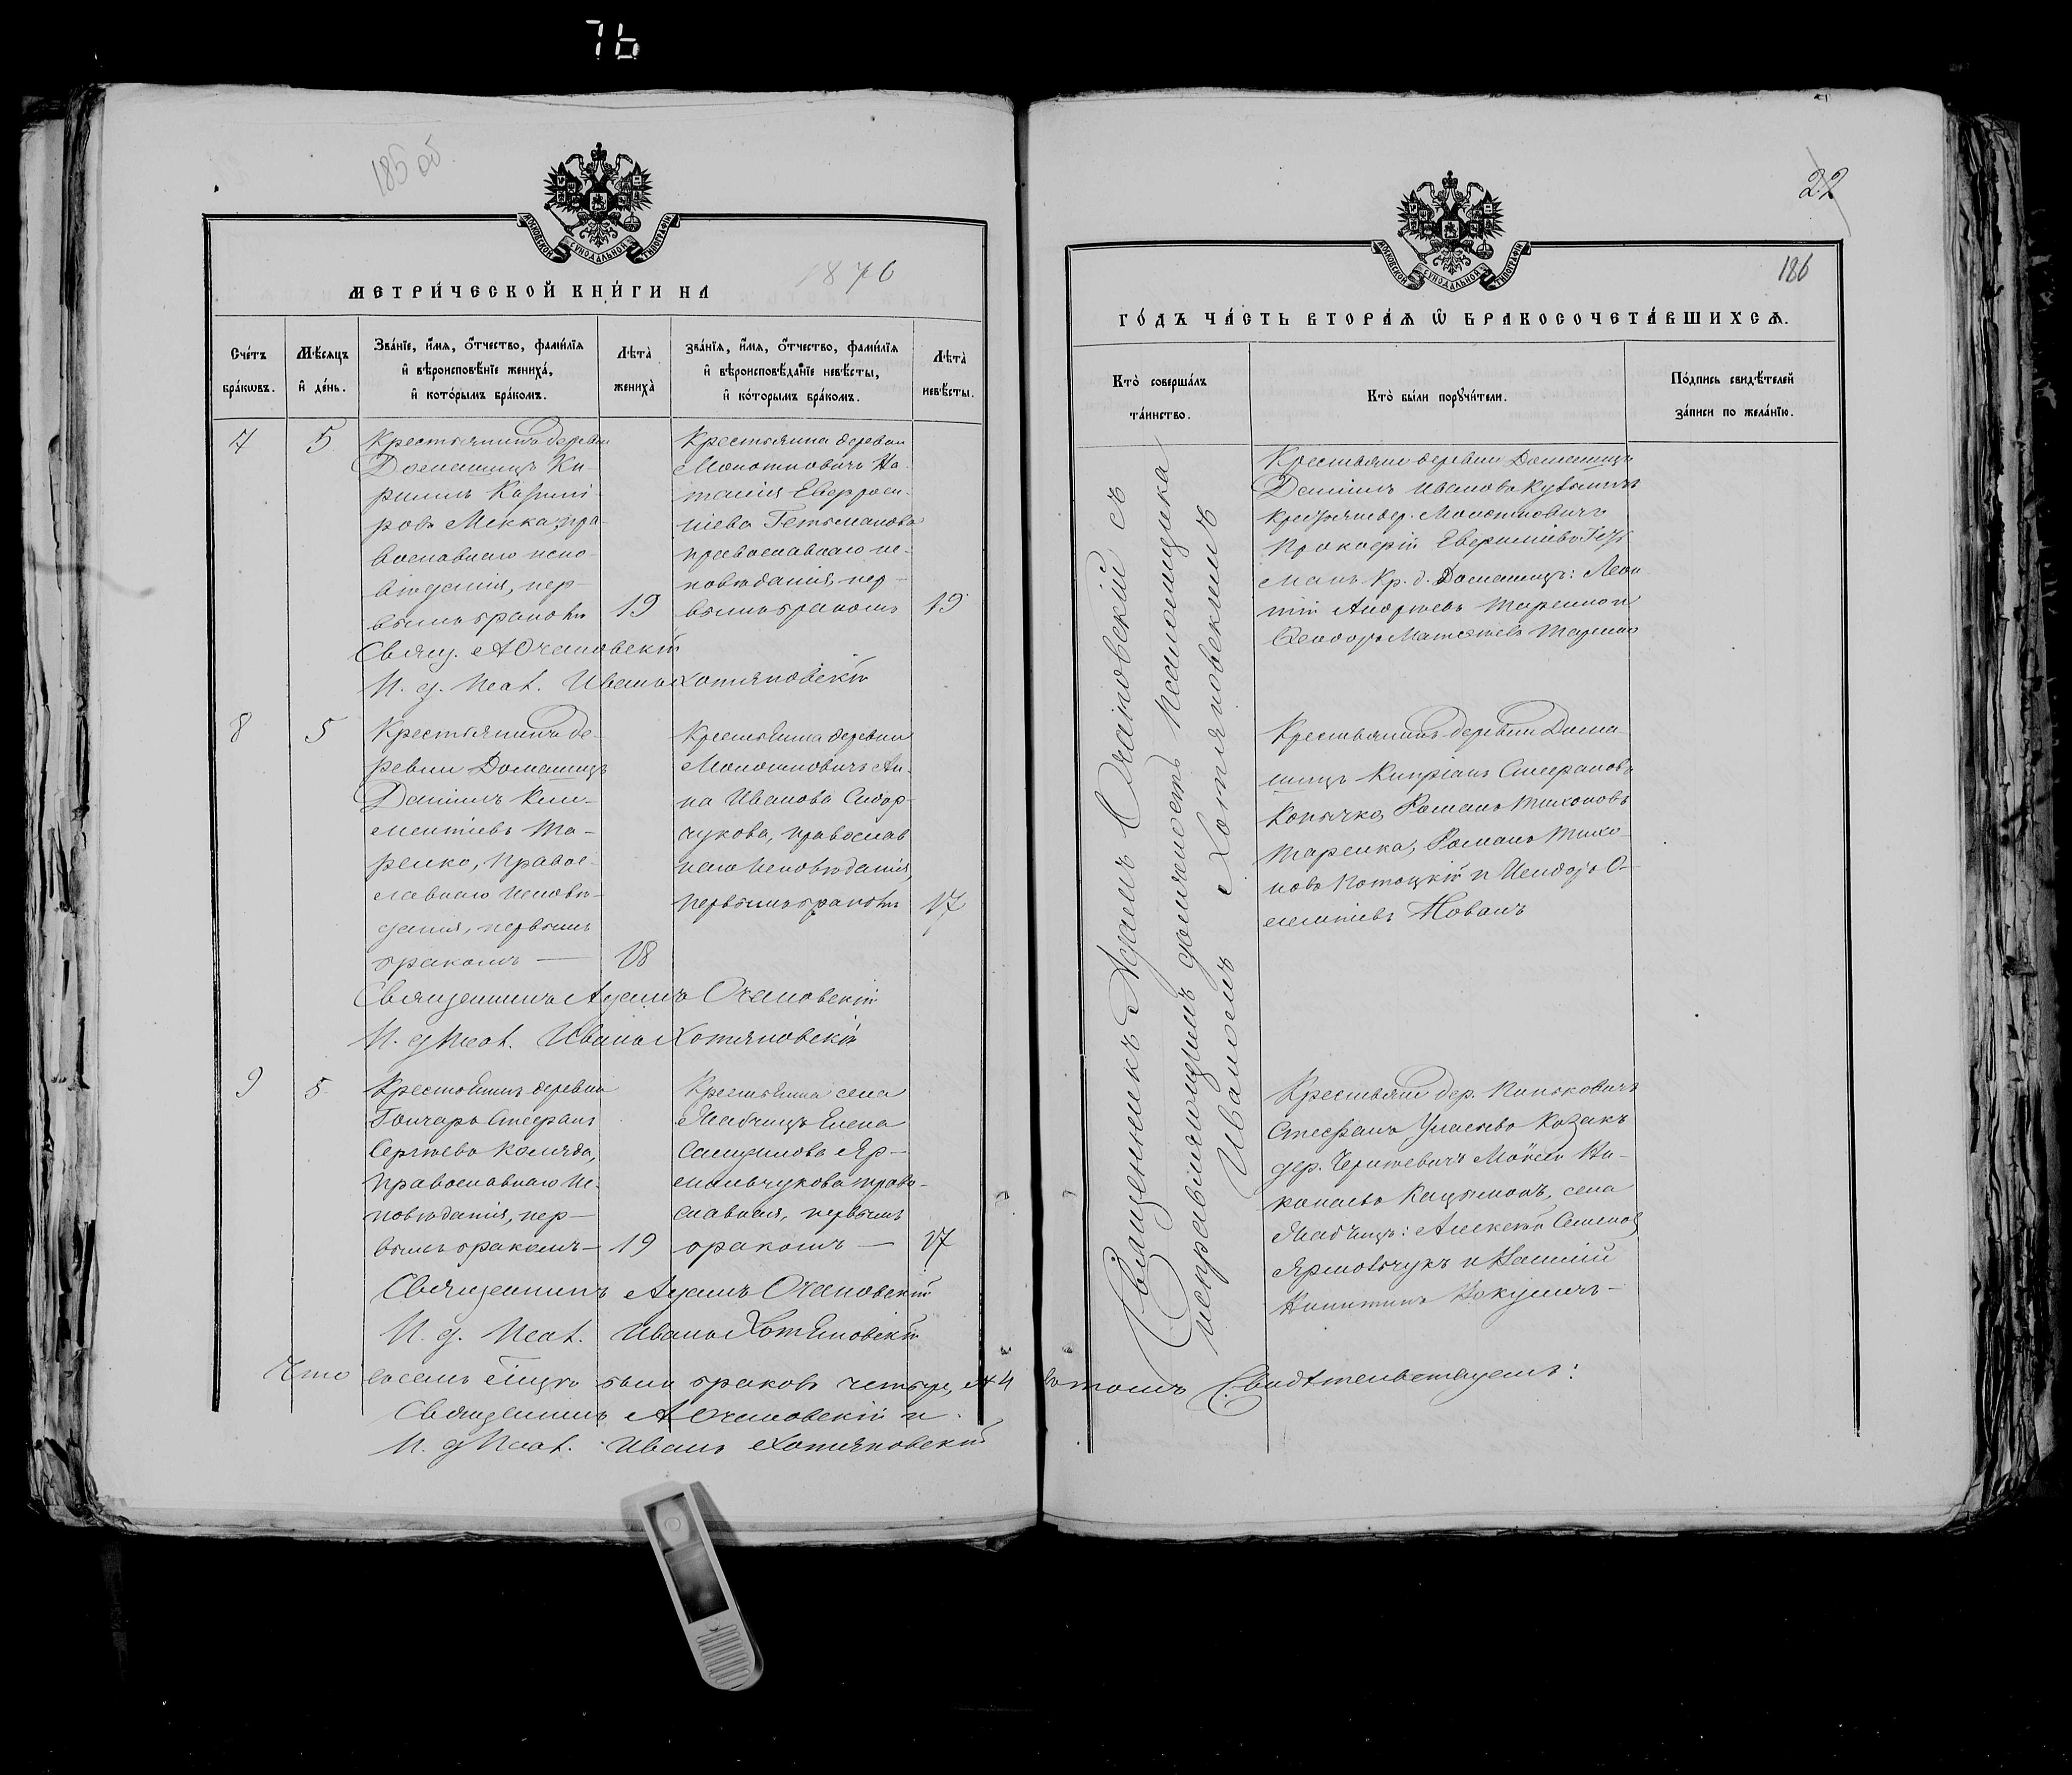 76
185 об.
МОСКОВСКОЙ СѴНОДАЛЬНОЙ ТИПОГРАФІИ
МЕТРИ́ЧЕСКОЙ КНИ́ГИ НА 1876
Сче́тъ бра́кωвъ.
Мѣ́сяцъ и҆ де́нь.
Зва́нїе, и҆́мѧ, ѻ҆́тчество, фами́лїѧ
и҆ вѣроисповѣ́нїе жениха̀,
и҆ кото́рымъ бра́комъ.
Лѣта̀ жениха̀
зва́нїѧ, и҆́мѧ, ѻ҆́тчество, фами́лїѧ
и҆ вѣроисповѣ́данїе невѣ́сты,
и҆ ко́торымъ бра́комъ.
Лѣта̀ невѣ́сты.
7 5
Крестьянинъ деревни
Домашицъ Ки-
риллъ
ровъ пра-
вославнаго испо-
вѣданія, пер-
вымъ бракомъ 19
Крестьянка деревни
Молотковичъ На-
талія Евфроси-
ніева Гетьманова
православнаго ис-
повѣданія, пер-
вымъ бракомъ 19
Свящ. А Очановскій
И. д. Псал. Иванъ Хотяновскій
8 5
Крестьянинъ де-
ревни Домашицъ
Даніилъ Кли-
ментіевъ Та-
ренко, правос-
лавнаго исповѣ-
данія, первымъ
бракомъ — 18
Крестьянка деревни
Молотковичъ Ан-
на Иванова Сидор-
чукова, православ
наго исповѣданія,
первымъ бракомъ 17
Священникъ Адамъ Очановскій
И. д Псал. Иванъ Хотяновскій
9 5
Крестьянинъ деревни
Гончаръ Стефанъ
Сергѣевъ Коляда,
православнаго ис-
повѣданія, пер-
вымъ бракомъ — 19
Крестьянка села
Жабчицъ Елена
Яр-
мольчукова право-
славная, первымъ
бракомъ — 17
Священникъ Адамъ Очановскій
И. д. Псал. Иванъ Хотяновскій
Что мѣсяцѣ было браковъ четыре, № 4 въ томъ Свидѣтельствуемъ:
Священникъ А Очановскій и
И. д Псал. Иванъ Хотяновскій
22
МОСКОВСКОЙ СѴНОДАЛЬНОЙ ТИПОГРАФІИ
186
ГО́ДЪ ЧА́СТЬ ВТОРА́Ѧ Ѽ БРАКОСОЧЕТА́ВШИХСѦ.
Кто̀ соверша́лъ та́инство.
Кто̀ бы́ли порꙋчи́тели.
По́дпись свидѣ́телей за́писи по жела́нїю.
Священникъ Адамъ Очановскій съ
исправляющимъ должность псаломщика
Иваномъ Хотяновскимъ
Крестьяне деревни Домашицъ
Даніилъ Ивановъ
дер. Молотковичъ
Прокофій Гетъ
манъ Кр. д. Домашицъ: Леон
тій Андреевъ Таренко и
Ѳеодоръ Матѳеевъ Таренко
Крестьянинъ деревни Дома
шицъ Кипріанъ Стефановъ
Романъ Тихоновъ
Таренка, Романъ Тихо-
новъ Потоцкій и
Крестьяне дер. Пинковичъ
Стефанъ Козакъ
дер. Моѵсей Ни-
колаевъ села
Жабчицъ: Алексѣй Семеновъ
Ярмольчукъ и
Никитинъ